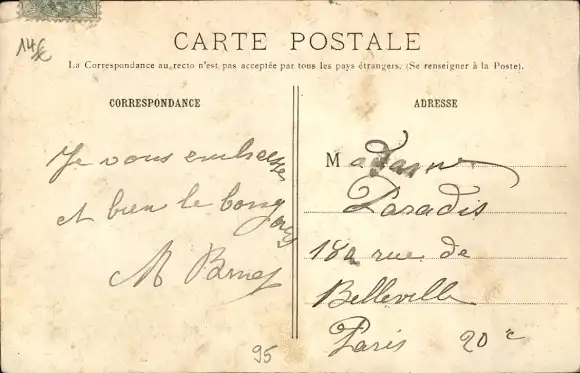 14€
CARTE POSTALE
La Correspondance au recto n'est pas acceptée par tous les pays étrangers. (Se renseigner à la Poste).
CORRESPONDANCE
Je vous embrasse
et bien le bonjour
M
95
ADRESSE
Madame
Paradis
182 rue de
Belleville
Paris 20e